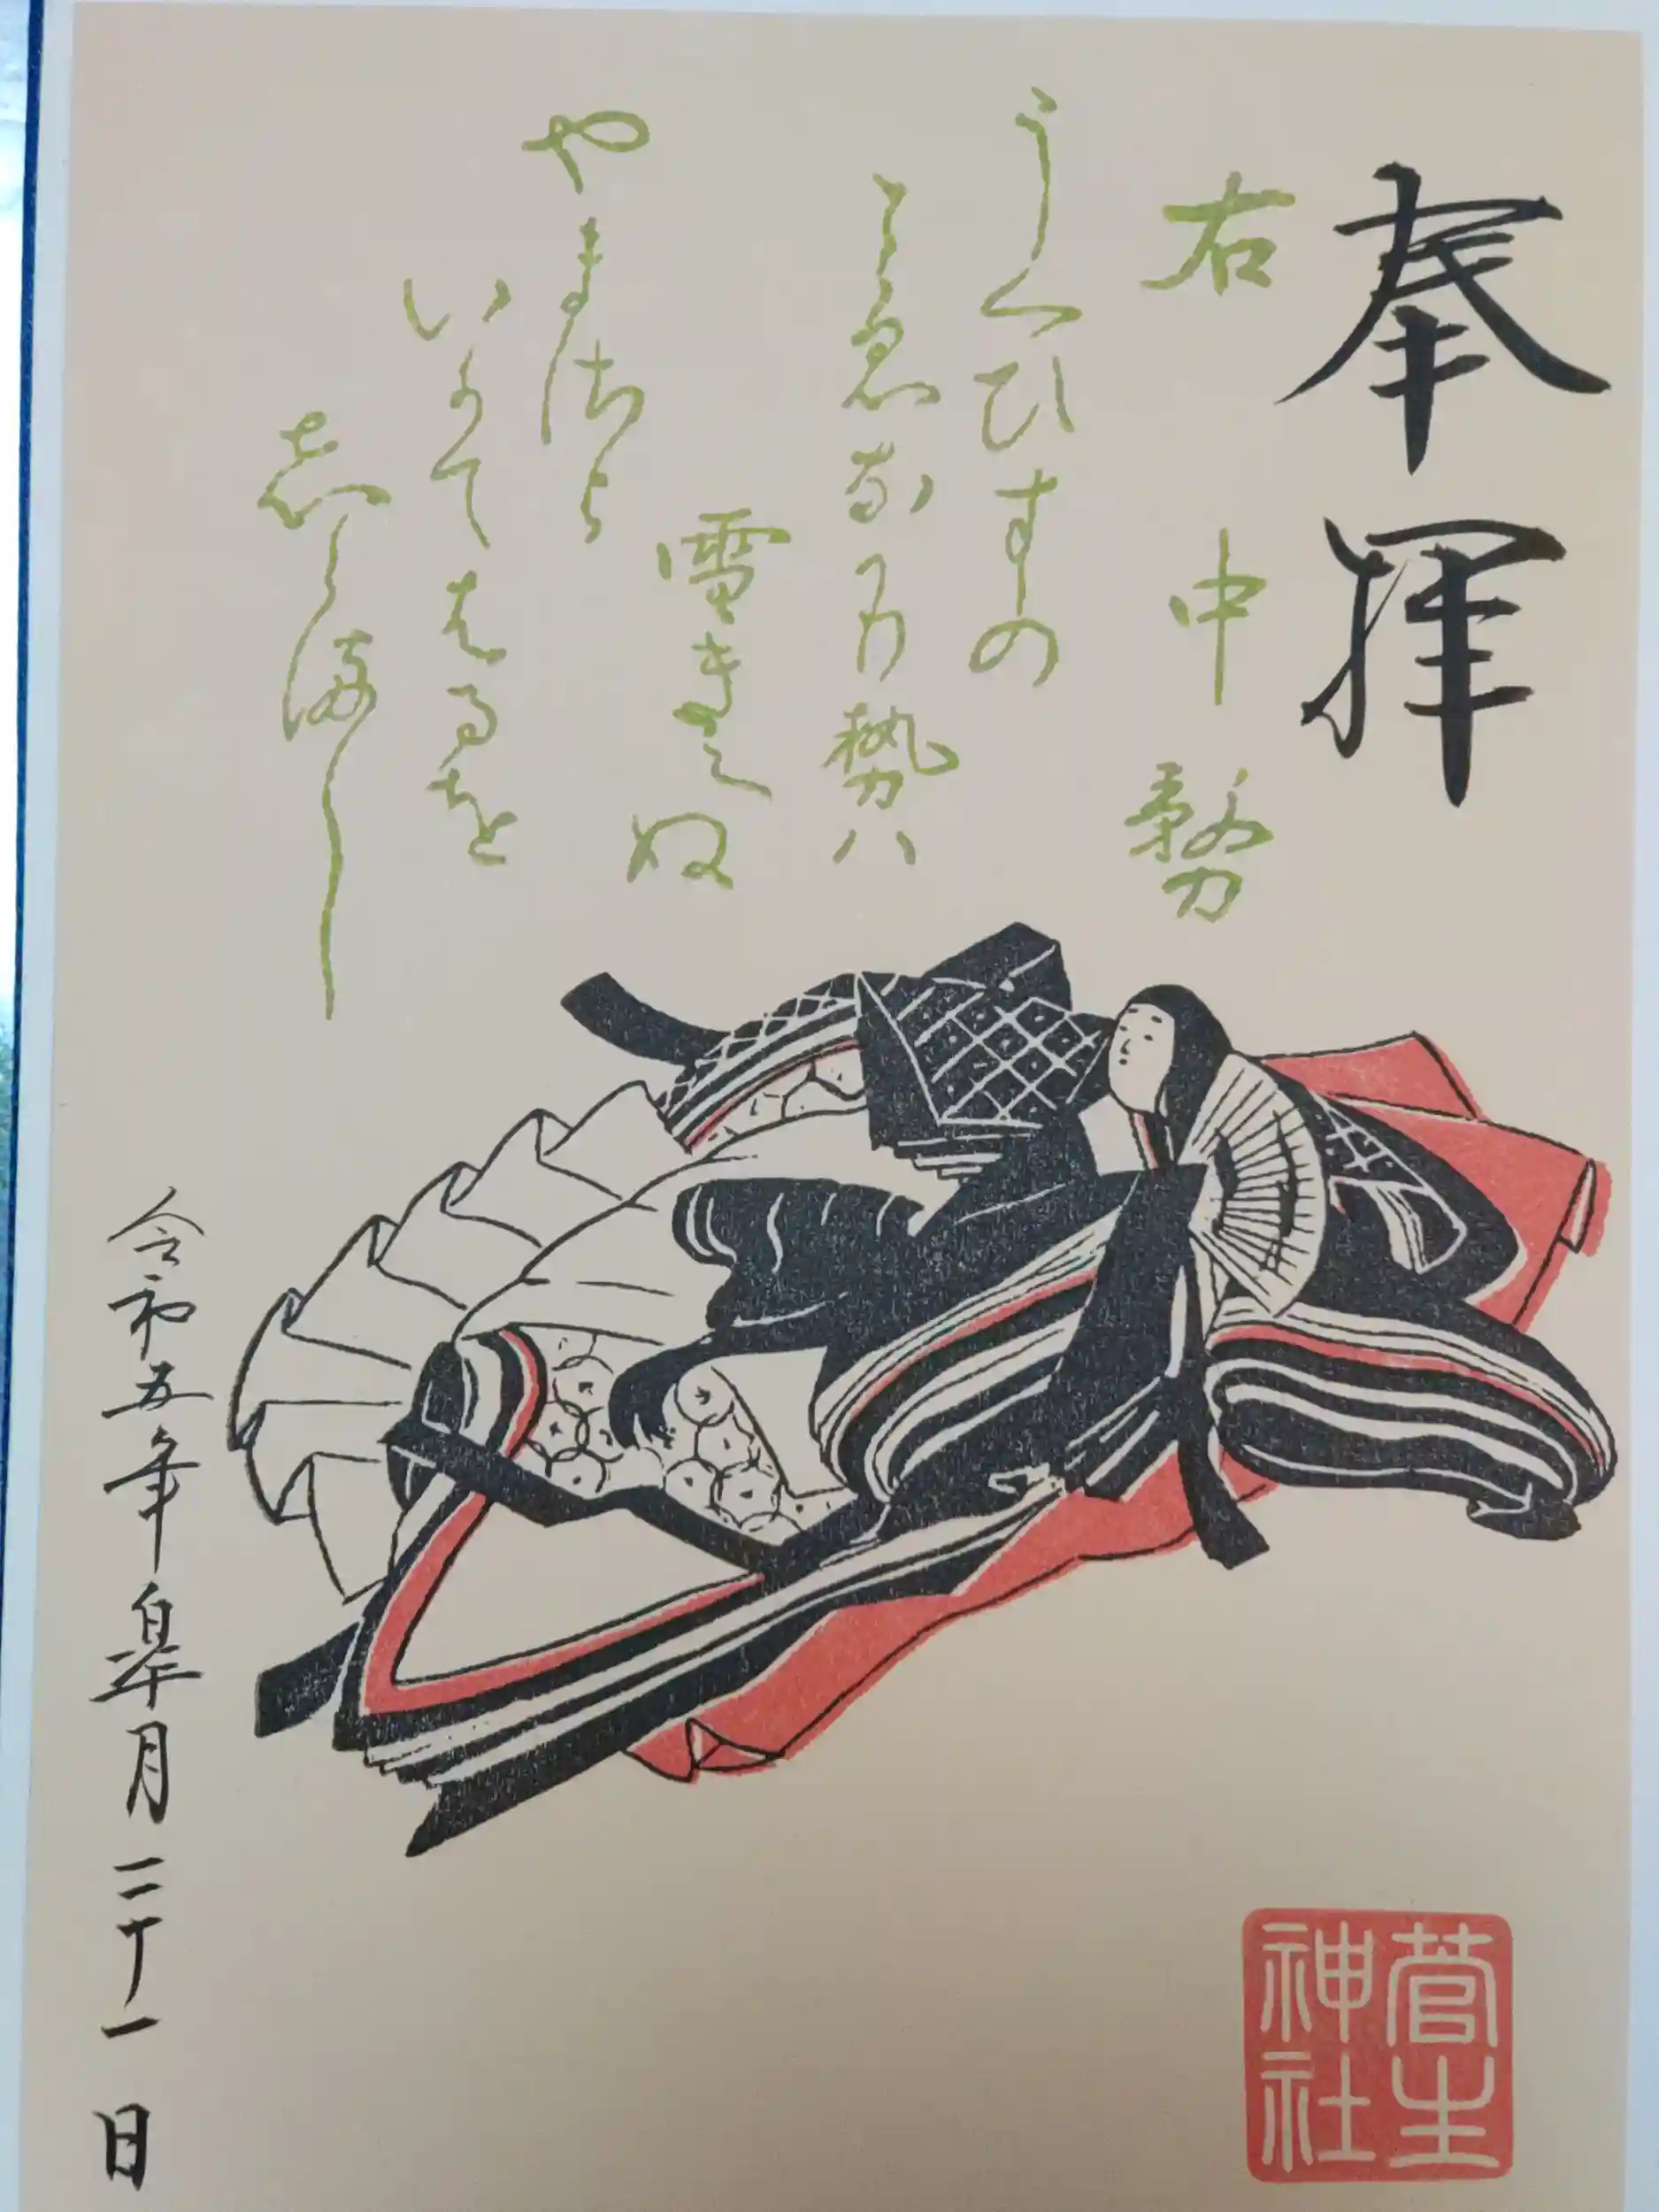 奉拝
右 中務
うくひすの
こゑなかり勢ハ
雪きえぬ
やまさと
いかてはるを
志らまし
令和五年皐月二十一日
菅生
神社